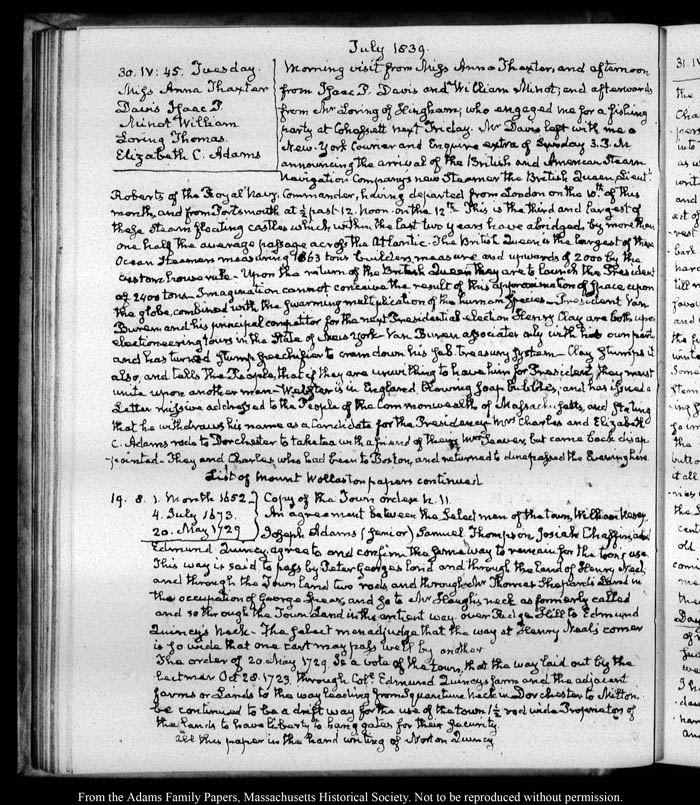 July 1839.
30. IV: 45. Tuesday.
Miss Anna Thaxter
Davis Isaac P.
Minot William
Loring Thomas.
Elizabeth C. Adams
Morning visit from Miss Anna Thaxter, and afternoon
from Isaac P. Davis and William Minot; and afterwards
from Mr Loring of Hingham; who engaged me for a fishing
party at Cohassett next Friday. Mr Davis left with me a
New-York Courier and Enquirer extra of Sunday 3. P.M
announcing the arrival of the British and American Steam
Navigation Company's new Steamer the British Queen, Lieutt
Roberts of the Royal Navy, Commander, having departed from London on the 10th of this
month, and from Portsmouth at ½ past 12. noon. on the 12th This is the third and largest of
these steam floating castles which, within the last two years have abridged, by more than
one half the average passage across the Atlantic. The British Queen is the largest of these
Ocean Steamers measuring 1863 tons builders measure and upwards of 2000 by the
custom house rule. Upon the return of the British Queen they are to launch the President
of 2400 tons. Imagination cannot conceive the result of this approximation of space upon
the globe, combined with the swarming multiplication of the human species. President Van
Buren and his principal competitor for the next Presidential election Henry Clay are both upon
electioneering tours in the State of New York. Van Buren associates only with his own party
and has turned stump speechifier to cram down his sub treasury system. Clay stumps it
also, and tells the People, that if they are unwilling to have him for President, they must
unite upon another man. Webster is in England, blowing soap bubbles, and has issued a
Letter missive addressed to the People of the Commonwealth of Massachusetts, and stating
that he withdraws his name as a Candidate for the Presidency. Mrs Charles and Elizabeth
C. Adams rode to Dorchester to take tea with a friend of theirs Mrs Seaver, but came back disap
-pointed. They and Charles who had been to Boston, and returned to dine passed the Evening here
List of Mount Wollaston papers continued
19. 8. 1. Month 1652
4. July 1673.
20. May 1729
Copy of the Town orders N. 11.
An agreement between the Select men of the town, William Veasy,
Joseph Adams (senior) Samuel Thompson Josiah Chapin, and
Edmund Quincy, agree to and confirm the same way to remain for the towns use.
This way is said to pass by Peter Georges land and through the land of Henry Neal,
and through the Town land two rods, and through Mr Thomas Shepards Land in
the occupation of George Spear, and so to Mr Houghs neck as formerly called
and so through the Town Land in the antient way over Hill to Edmund
Quincy's Neck. The Select men adjudge that the way at Henry Neal's corner
is so wide that one cart may pass well by another
The order of 20. May 1729. is a vote of the town, that the way laid out by the
Select men Oct 28. 1723. through Col. Edmund Quincys farm and the adjacent
farms or Lands to the way leading from Squantum Neck in Dorchester to Milton.
be continued to be a drift way for the use of the town 1½ rod wide Proprietors of
the lands to have liberty to hang gates for their security
all this paper in the hand writing of Norton Quincy
From the Adams Family Papers, Massachusetts Historical Society. Not to be reproduced without permission.